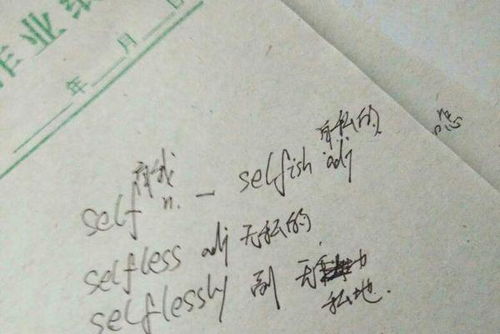 作业纸
年 月 日
self n. 自我 - selfish adj 自私的
selfless adj 无私的
selflessly 副 无私地.